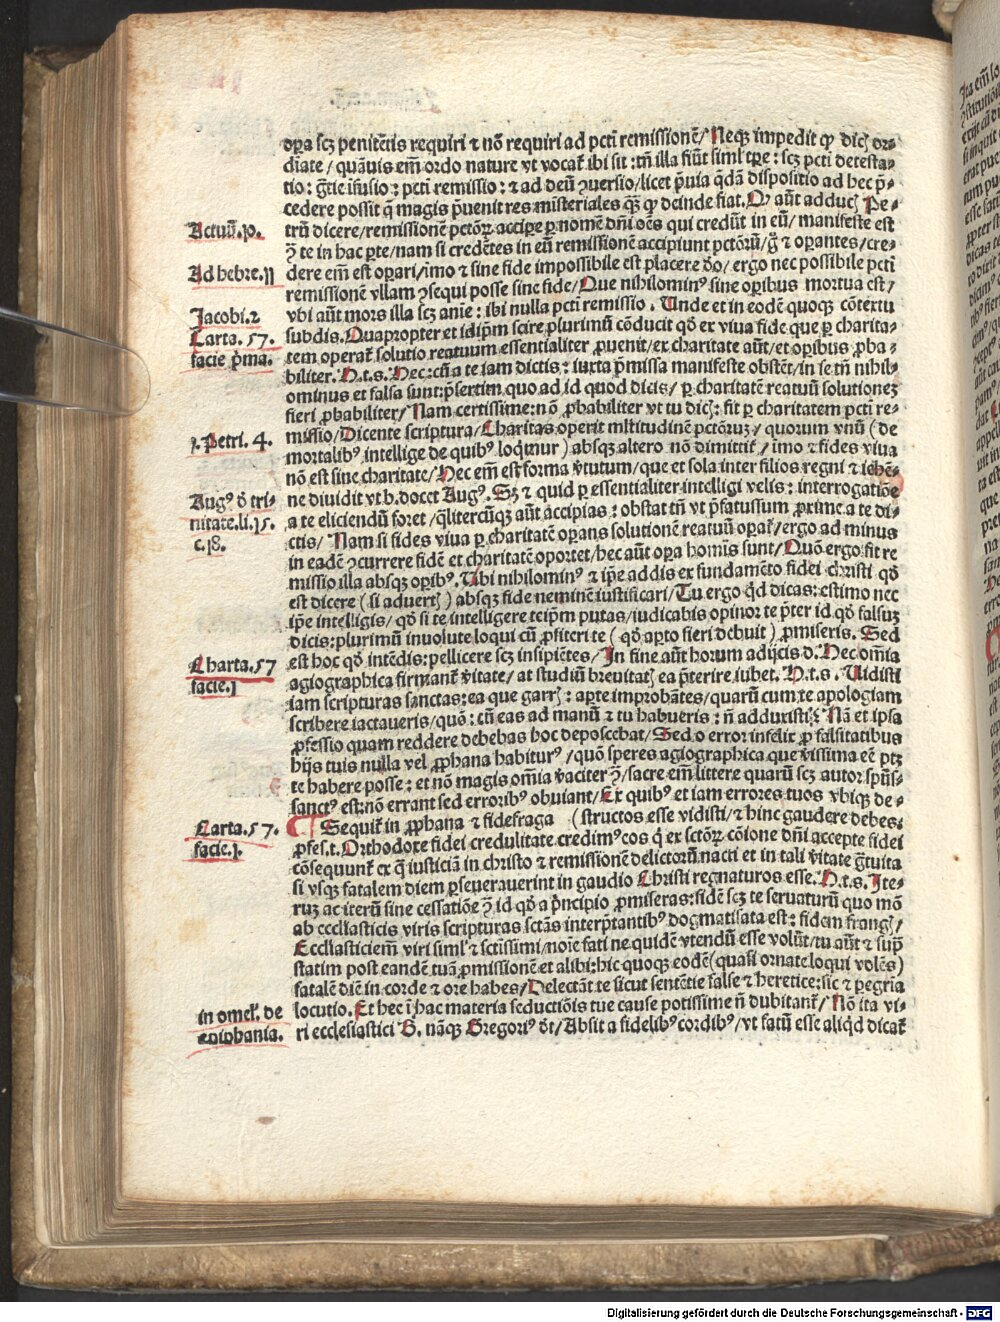 oꝑa scꝫ penitētis requiri ⁊ nō requiri ad pcti remissionē/ Neqꝫ impedit ꝙ dicꝭ or⸗
dīate/ quāuis em̄ ordo nature vt vocat̄ ibi sit: tn̄ illa fiūt siml̄ tꝑe: scꝫ pcti detesta⸗
tio: gr̄tie īfusio: ⁊ pcti remissio: ⁊ ad deū ꝯuersio/ licet p̄uia qd̄ā dispositio ad hec p̄⸗
cedere possit q̄ magis p̄uenit res mīsteriales qꝫ ꝙ deinde fiat. Qꝫ aūt adducꝭ Pe⸗
Actuū.10.
trū dicere/ remissionē pctōꝝ accipe ꝑ nomē dn̄i oēs qui credūt in eū/ manifeste est
ꝯ te in hac ꝑte/ nam si credētes in eū remissionē accipiunt pctōrū/ g̊ ⁊ oꝑantes/ cre⸗
Ad hebre.11
dere em̄ est oꝑari/ īmo ⁊ sine fide impossibile est placere deo/ ergo nec possibile pcti
remissionē vllam ꝯsequi posse sine fide/ Que nihilominꝰ sine oꝑibus mortua est/
Jacobi.2
vbi aūt mors illa scꝫ anīe: ibi nulla pcti remissio. Unde et in eodē quoqꝫ cōtextu
Carta.57.
subdis. Quapropter et idip̄m scire plurimū cōducit qd̄ ex viua fide que ꝑ charita⸗
facie p̄ma.
tem operat̄ solutio reatuum essentialiter ꝓuenit/ ex charitate aūt/ et oꝑibus ꝓba⸗
biliter. H.t.s. Hec: cū a te iam dictis: iuxta p̄missa manifeste obstēt/ in se tn̄ nihil⸗
ominus et falsa sunt: p̄sertim quo ad id quod dicis/ ꝑ charitatē reatuū solutionez
fieri ꝓbabiliter/ Nam certissime: nō ꝓbabiliter vt tu dicꝭ: fit ꝑ charitatem pcti re⸗
1.Petri.4.
missio/ Dicente scriptura/ Charitas operit mltitudinē pctōruꝫ/ quorum vnū (de
mortalibꝰ intellige de quibꝰ loqimur) absqꝫ altero nō dimittit̄/ īmo ⁊ fides viua
nō est sine charitate/ Hec em̄ est forma v̄tutum/ que et sola inter filios regni ⁊ iehē⸗
Augꝰ ď tri⸗
ne diuidit vt b. docet Augꝰ. Sꝫ ⁊ quid ꝑ essentialiter intelligi velis: interrogatiōe
nitate.li.15.
a te eliciendū foret/ qͣlitercūqꝫ aūt accipias: obstat tn̄ vt p̄fatussum ꝓxime a te di⸗
c.18.
ctis/ Nam si fides viua ꝑ charitatē oꝑans solutionē reatuū oꝑat̄/ ergo ad minus
in eadē ꝯcurrere fidē et charitatē oportet/ hec aūt oꝑa homīs sunt/ Quō ergo fit re
missio illa absqꝫ oꝑibꝰ. Ubi nihilominꝰ ⁊ ip̄e addis ex fundamēto fidei christi qd̄
est dicere (si aduertꝭ) absqꝫ fide neminē iustificari/ Tu ergo qd̄ dicas: estimo nec
ip̄e intelligis/ qd̄ si te intelligere teip̄m putas/ iudicabis opinor te p̄ter id qd̄ falsuꝫ
dicis: plurimū inuolute loqui cū ꝓfiteri te (qd̄ apto fieri debuit) ꝓmiseris. Sed
Charta.57
est hoc qd̄ intēdis: pellicere scꝫ insipiētes/ In fine aūt horum adijcis d. Hec om̄ia
facie.1
agiographica firmant̄ v̄itate/ at studiū breuitatꝭ ea p̄terire iubet. H.t.s. Uidisti
iam scripturas sanctas: ea que garrꝭ: apte improbātes/ quarū cum te apologiam
scribere iactaueris/ quō: cū eas ad manū ⁊ tu habueris: n̄ adduxisti? Nā et ipsa
ꝓfessio quam reddere debebas hoc deposcebat/ Sed o error infelix ꝓ falsitatibus
hijs tuis nulla vel ꝓphana habiturꝰ/ quō speres agiographica que v̄issima eē ptꝫ
te habere posse: et nō magis om̄ia v̄aciter ꝯ/ sacre em̄ littere quarū scꝫ autor spūs⸗
sanctꝰ est: nō errant sed erroribꝰ obuiant/ Ex quibꝰ et iam errores tuos vbiqꝫ de⸗
Carta.57.
Sequit̄ in ꝓphana ⁊ fidefraga (structos esse vidisti/ ⁊ hinc gaudere debes.
facie.1.
ꝓfes.t. Orthodoxe fidei credulitate credimꝰ cos q̇ ex sctōꝝ cōione dn̄i accepte fidei
cōsequunt̄ ex q̄ iusticiā in christo ⁊ remissionē delictorū nacti et in tali v̄itate gr̄tuita
si vsqꝫ fatalem diem ꝑseuerauerint in gaudio Christi regnaturos esse. H.t.s. Ite⸗
ruꝫ ac iterū sine cessatiōe ꝯ id qd̄ a p̄ncipio ꝓmiseras: fidē scꝫ te seruaturū quo mō
ab ecclesiasticis viris scripturas sctās interp̄tantibꝰ dogmatisata est: fidem frangꝭ/
Ecclesiasticiem̄ viri siml̄ ⁊ sctissimi/ noīe fati ne quidē vtendū esse volūt/ tu aūt ⁊ suꝑ
statim post eandē tuā ꝓmissionē et alibi: hic quoqꝫ eodē (quasi ornate loqui volēs)
fatalē diē in corde ⁊ ore habes/ Delectāt te sicut sentētie false ⁊ heretice: sic ⁊ ꝑegria
in omel̄. de
locutio. Et hec ī hac materia seductiōis tue cause potissime n̄ dubitant̄/ Nō ita vi⸗
epiphania.
ri ecclesiastici B. nāqꝫ Gregoriꝰ dt̄/ Absit a fidelibꝰ cordibꝰ/ vt fatū esse aliqd dicāt
Digitalisierung gefördert durch die Deutsche Forschungsgemeinschaft - DFG